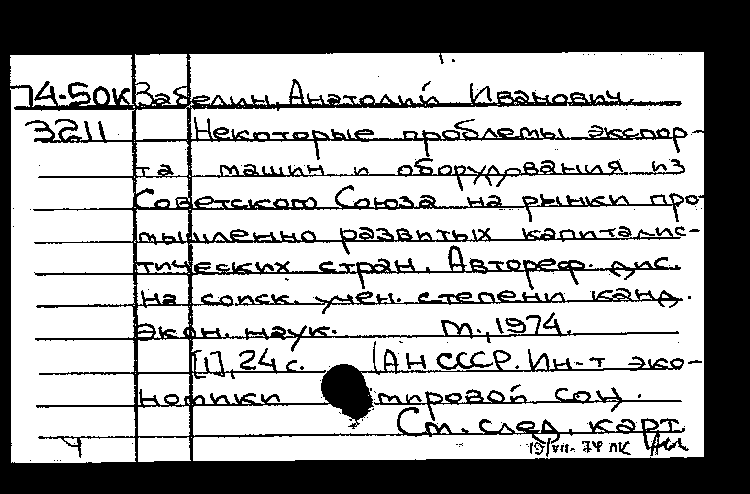 1.
74-50К Забелин, Анатолий Иванович.
3211 Некоторые проблемы экспор-
та машин и оборудования из
Советского Союза на рынки про-
мышленно развитых капиталис-
тических стран. Автореф. дис.
на соиск. учен. степени канд.
экон. наук. М., 1974.
[1], 24 с. (АН СССР. Ин-т эко-
номики мировой соц.
См. след. карт.
Ч 19/VII-74 ПК